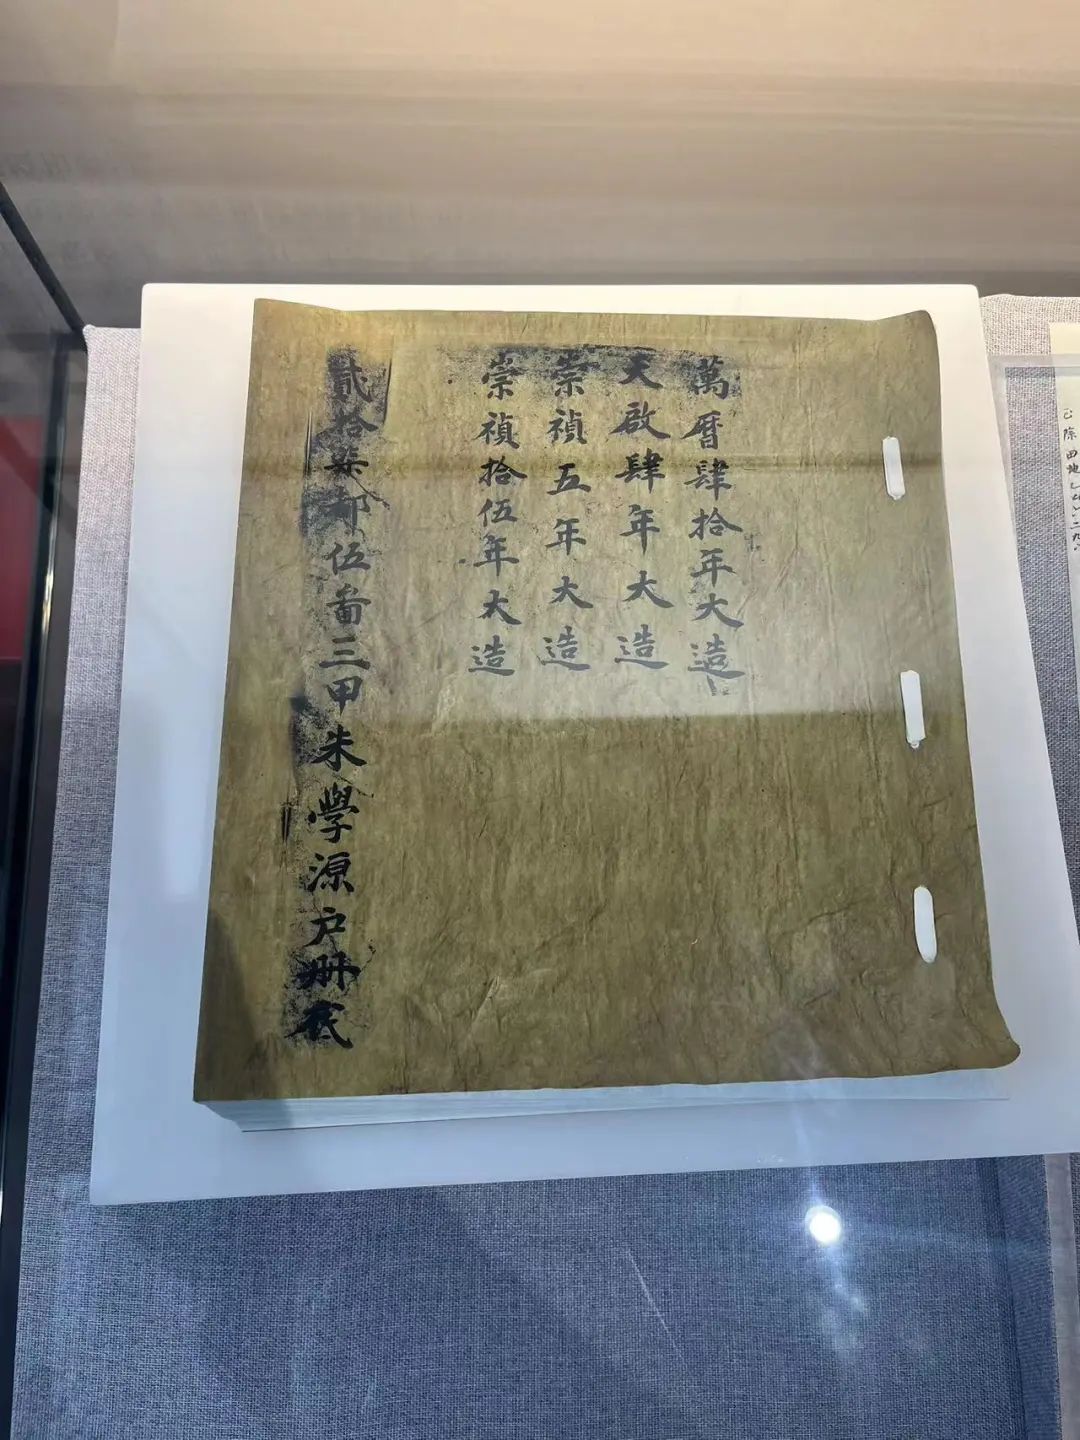 萬曆肆拾年大造
天啟肆年大造
崇禎五年大造
崇禎拾伍年大造
貳拾柒都伍啚三甲朱學源户册底